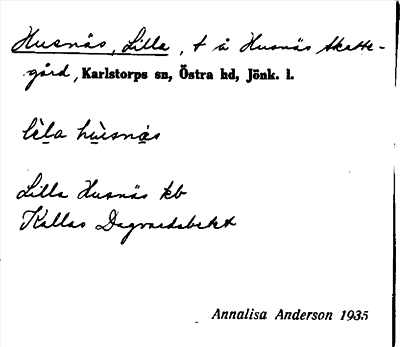 Husnäs, Lilla, t å Husnäs skatte-
gård, Karlstorps sn, Östra hd, Jönk. l.
Lilla Husnäs kb
Kallas
Annalisa Anderson 1935